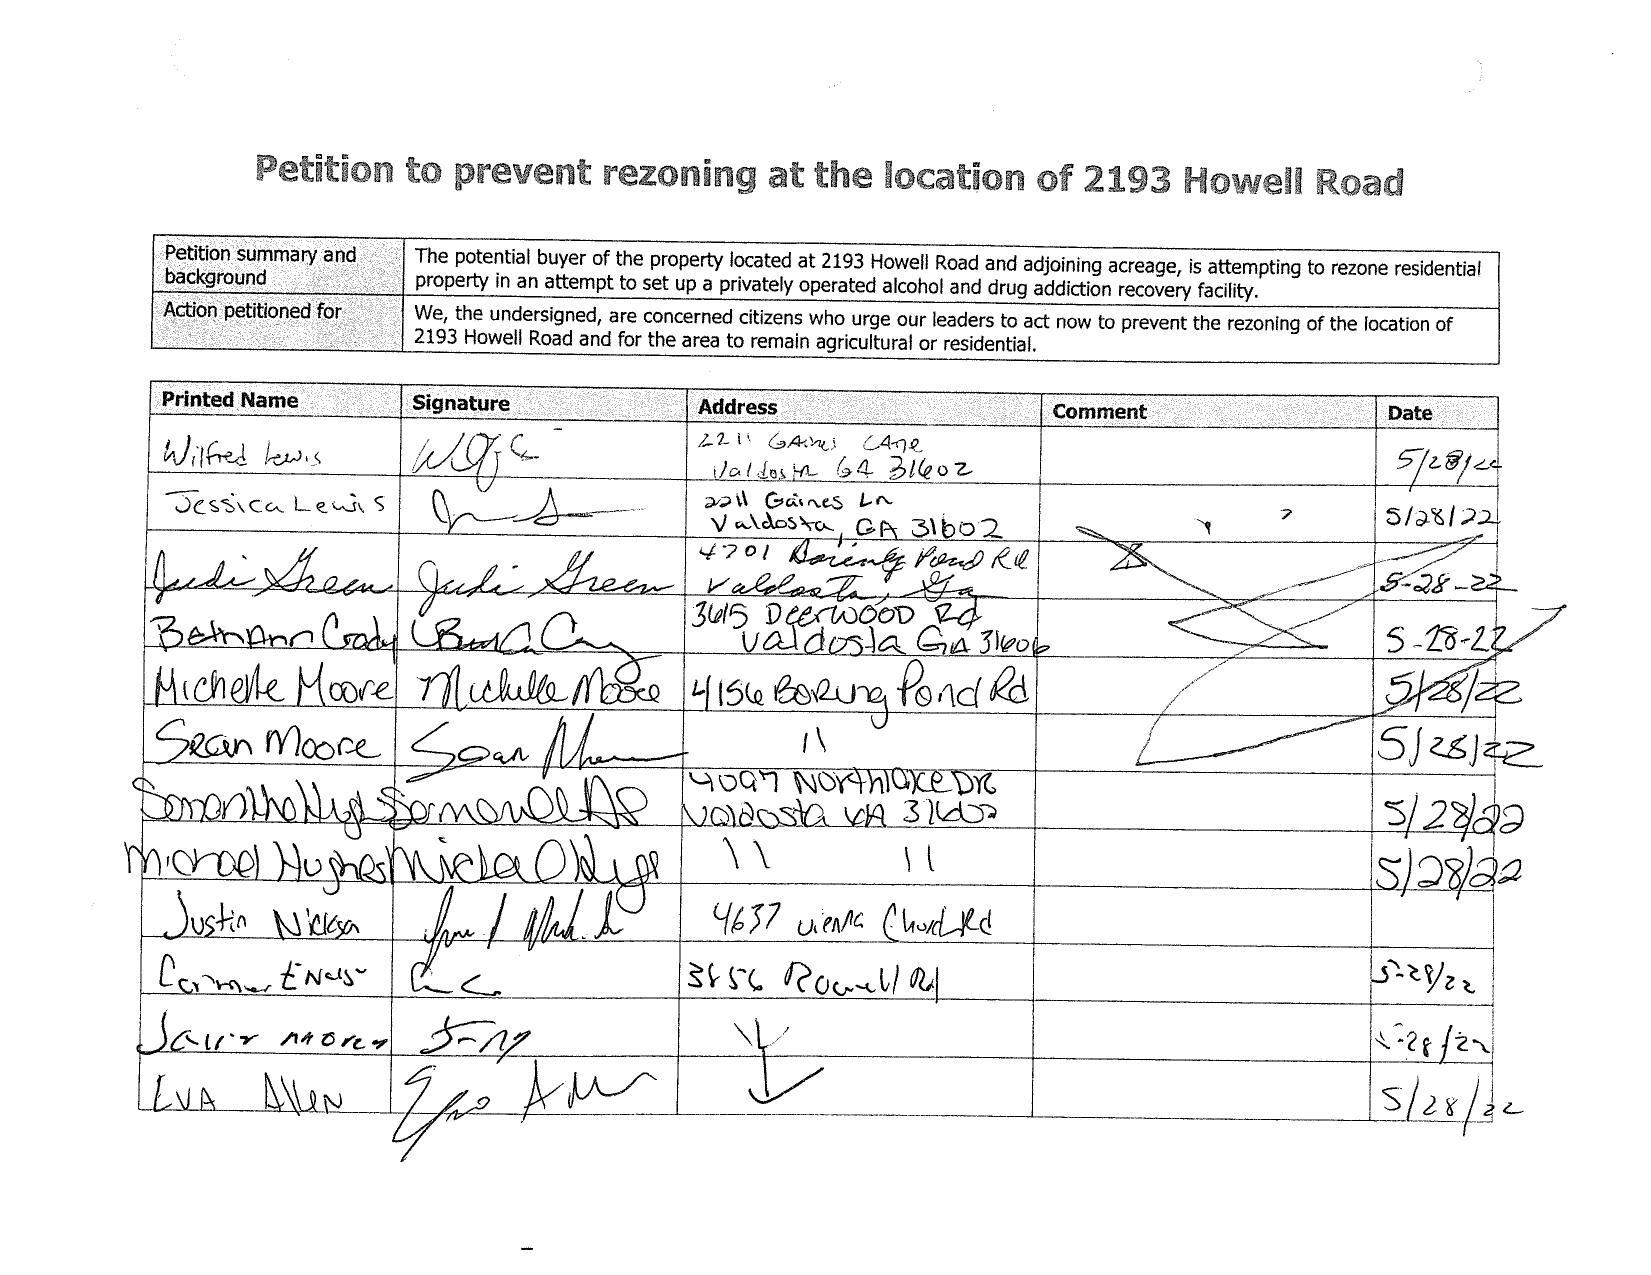 Petition to prevent rezoning at the location of 2193 Howell Road
Petition summary and background
The potential buyer of the property located at 2193 Howell Road and adjoining acreage, is attempting to rezone residential
property in an attempt to set up a privately operated alcohol and drug addiction recovery facility.
Action petitioned for
We, the undersigned, are concerned citizens who urge our leaders to act now to prevent the rezoning of the location of
2193 Howell Road and for the area to remain agricultural or residential.
Printed Name Signature Address Comment Date
Wilfred Lewis 2211 Gaines Lane
Valdosta GA 31602 5/28/22
Jessica Lewis 2211 Gaines Ln
Valdosta, GA 31602 5/28/22
Judi Green Judi Green 4701 Pond Rd
Valdosta, Ga 5-28-22
BethAnn Grady 3615 Deerwood Rd
Valdosta GA 31606 5-28-22
Michelle Moore Michelle Moore 4156 Boring Pond Rd 5/28/22
Sean Moore Sean Moore 11 5/28/22
4097 Northlake DR
Valdosta GA 31602 5/28/22
Michael Hughes 11 11 5/28/22
Justin 4637 Vienna Church Rd
Rd 5-28/22
-28/22
EVA Allen Eva 5/28/22